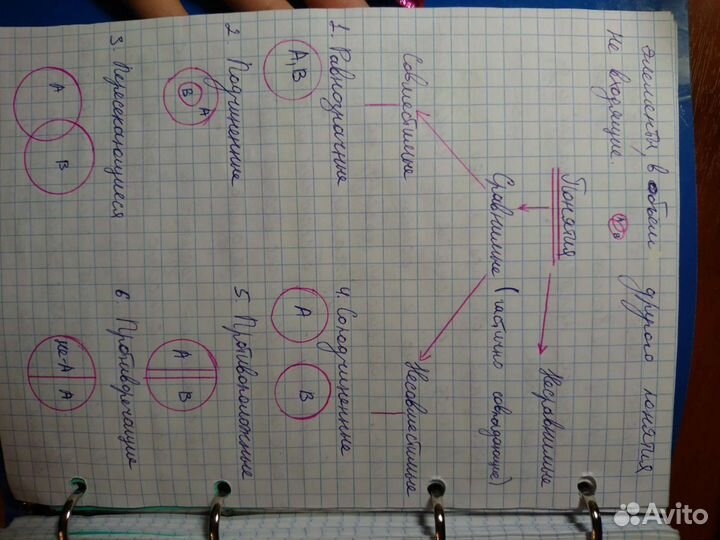 элементы, в объём другого понятия
не входящие. А В
Понятия
Сравнимые (частично совпадающие) Несравнимые
Совместимые Несовместимые
1. Равнозначные 4. Соподчиненные
А, В А В
2. Подчиненные 5. Противоположные
А В А В
3. Пересекающиеся 6. Противоречащие
А В не-А А
Avito